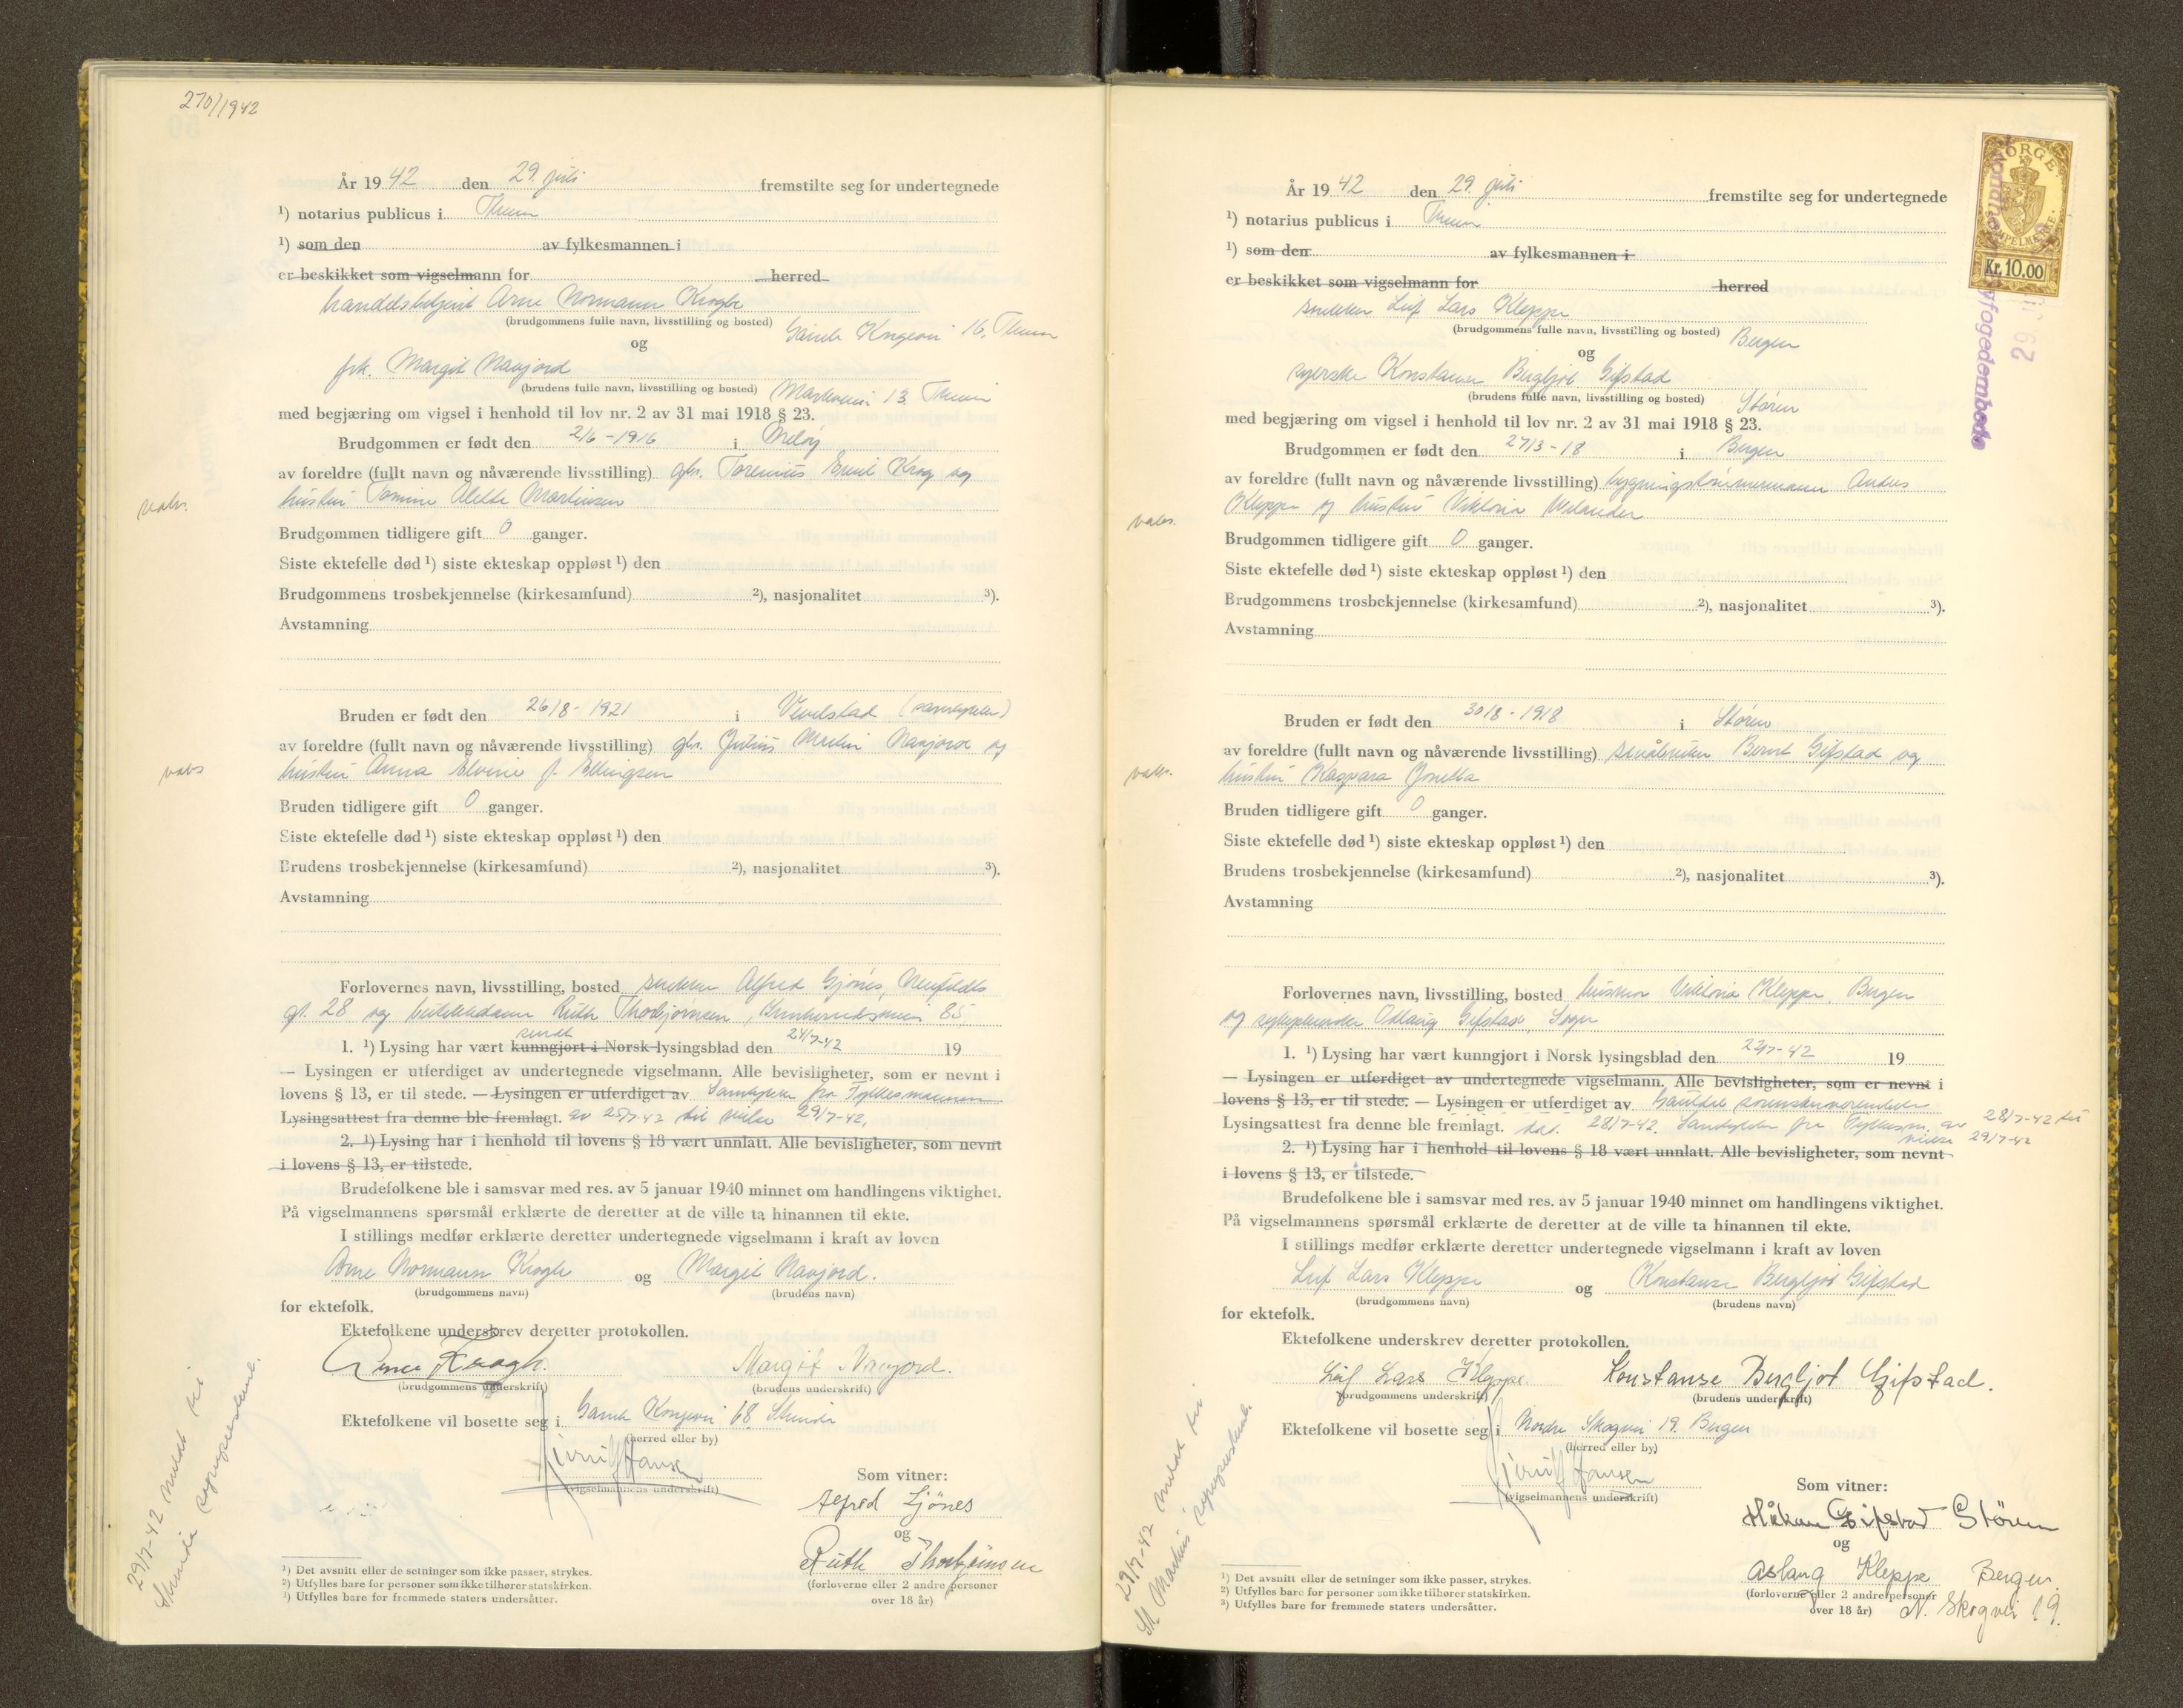 270/1942
År 1942 den 29. juli fremstilte seg for undertegnede
¹) notarius publicus i Thm
¹) som den av fylkesmannen i
er beskikket som vigselmann for herred
handelsbetjent Arne Normann Krogh
(brudgommens fulle navn, livsstilling og bosted) Gamle Kongevei 16, Thm
og
frk. Margit Navjord
(brudens fulle navn, livsstilling og bosted) 13, Thm
med begjæring om vigsel i henhold til lov nr. 2 av 31 mai 1918 § 23.
Brudgommen er født den 2/6-1916 i Meløy
av foreldre (fullt navn og nåværende livsstilling) gbr. Torenius Emil Krog og
hustru Tomine Alette Martinsen
vaks.
Brudgommen tidligere gift 0 ganger.
Siste ektefelle død ¹) siste ekteskap oppløst ¹) den
Brudgommens trosbekjennelse (kirkesamfund) ²), nasjonalitet ³).
Avstamning
Bruden er født den 26/8-1921 i Vevelstad (samtykker)
av foreldre (fullt navn og nåværende livsstilling) gbr. Julius Martin Navjord og
hustru Anna Elvine f. Ellingsen
vaks
Bruden tidligere gift 0 ganger.
Siste ektefelle død ¹) siste ekteskap oppløst ¹) den
Brudens trosbekjennelse (kirkesamfund) ²), nasjonalitet ³).
Avstamning
Forlovernes navn, livsstilling, bosted snekker Alfred Gjönes, Neufeldts
gt. 28 og Ruth Thorbjörnsen, 85
sendt
1. ¹) Lysing har vært kunngjort i Norsk lysingsblad den 24/7-42 19
— Lysingen er utferdiget av undertegnede vigselmann. Alle bevisligheter, som er nevnt i
lovens § 13, er til stede. — Lysingen er utferdiget av Samtykke fra Fylkesmannen
Lysingsattest fra denne ble fremlagt. av 25/7-42 til vielse 29/7-42,
2. ¹) Lysing har i henhold til lovens § 18 vært unnlatt. Alle bevisligheter, som nevnt
i lovens § 13, er tilstede.
Brudefolkene ble i samsvar med res. av 5 januar 1940 minnet om handlingens viktighet.
På vigselmannens spørsmål erklærte de deretter at de ville ta hinannen til ekte.
I stillings medfør erklærte deretter undertegnede vigselmann i kraft av loven
Arne Normann Krogh og Margit Navjord.
(brudgommens navn) (brudens navn)
for ektefolk.
Ektefolkene underskrev deretter protokollen.
Arne Krogh. Margit Navjord.
(brudgommens underskrift) (brudens underskrift)
Ektefolkene vil bosette seg i Gamle Kongevei 68 Strinda
(herred eller by)
Hansen
(vigselmannens underskrift)
Som vitner:
Alfred Gjönes
og
Ruth Thorbjörnsen
(forloverne eller 2 andre personer
over 18 år)
29/7-42 meldt til
Strinda sogneprestemb.
¹) Det avsnitt eller de setninger som ikke passer, strykes.
²) Utfylles bare for personer som ikke tilhører statskirken.
³) Utfylles bare for fremmede staters undersåtter.
NORGE
STEMPELMERKE
Kr. 10.00
Trondheim byfogedembede
29
År 1942 den 29. juli fremstilte seg for undertegnede
¹) notarius publicus i Thm
¹) som den av fylkesmannen i
er beskikket som vigselmann for herred
snekker Leif Lars Kleppe
(brudgommens fulle navn, livsstilling og bosted) Bergen
og
syerske Konstanse Bergljot Gifstad
(brudens fulle navn, livsstilling og bosted) Støren
med begjæring om vigsel i henhold til lov nr. 2 av 31 mai 1918 § 23.
Brudgommen er født den 27/3-18 i Bergen
av foreldre (fullt navn og nåværende livsstilling) bygningstømmermann Anders
Kleppe og hustru Viktoria Melander
vaks.
Brudgommen tidligere gift 0 ganger.
Siste ektefelle død ¹) siste ekteskap oppløst ¹) den
Brudgommens trosbekjennelse (kirkesamfund) ²), nasjonalitet ³).
Avstamning
Bruden er født den 30/8-1918 i Støren
av foreldre (fullt navn og nåværende livsstilling) småbruker Bernt Gifstad og
hustru Kaspara Jonetta
vaks.
Bruden tidligere gift 0 ganger.
Siste ektefelle død ¹) siste ekteskap oppløst ¹) den
Brudens trosbekjennelse (kirkesamfund) ²), nasjonalitet ³).
Avstamning
Forlovernes navn, livsstilling, bosted husmor Viktoria Kleppe, Bergen
og sykepleierske Oddlaug Gifstad,
1. ¹) Lysing har vært kunngjort i Norsk lysingsblad den 22/7-42 19
— Lysingen er utferdiget av undertegnede vigselmann. Alle bevisligheter, som er nevnt i
lovens § 13, er til stede. — Lysingen er utferdiget av Gauldal sorenskriverembete
Lysingsattest fra denne ble fremlagt. dat. 28/7-42. Samtykke fra Fylkesm. av 28/7-42 til
vielse 29/7-42
2. ¹) Lysing har i henhold til lovens § 18 vært unnlatt. Alle bevisligheter, som nevnt
i lovens § 13, er tilstede.
Brudefolkene ble i samsvar med res. av 5 januar 1940 minnet om handlingens viktighet.
På vigselmannens spørsmål erklærte de deretter at de ville ta hinannen til ekte.
I stillings medfør erklærte deretter undertegnede vigselmann i kraft av loven
Leif Lars Kleppe og Konstanse Bergljot Gifstad
(brudgommens navn) (brudens navn)
for ektefolk.
Ektefolkene underskrev deretter protokollen.
Leif Lars Kleppe. Konstanse Bergljot Gifstad.
(brudgommens underskrift) (brudens underskrift)
Ektefolkene vil bosette seg i Nordre Skogvei 19. Bergen
(herred eller by)
Hansen
(vigselmannens underskrift)
Som vitner:
Håkon Gifstad Stören
og
Aslaug Kleppe Bergen.
(forloverne eller 2 andre personer
over 18 år) N. Skogvei 19.
29/7-42 meldt til
St. Markus sogneprestemb.
¹) Det avsnitt eller de setninger som ikke passer, strykes.
²) Utfylles bare for personer som ikke tilhører statskirken.
³) Utfylles bare for fremmede staters undersåtter.